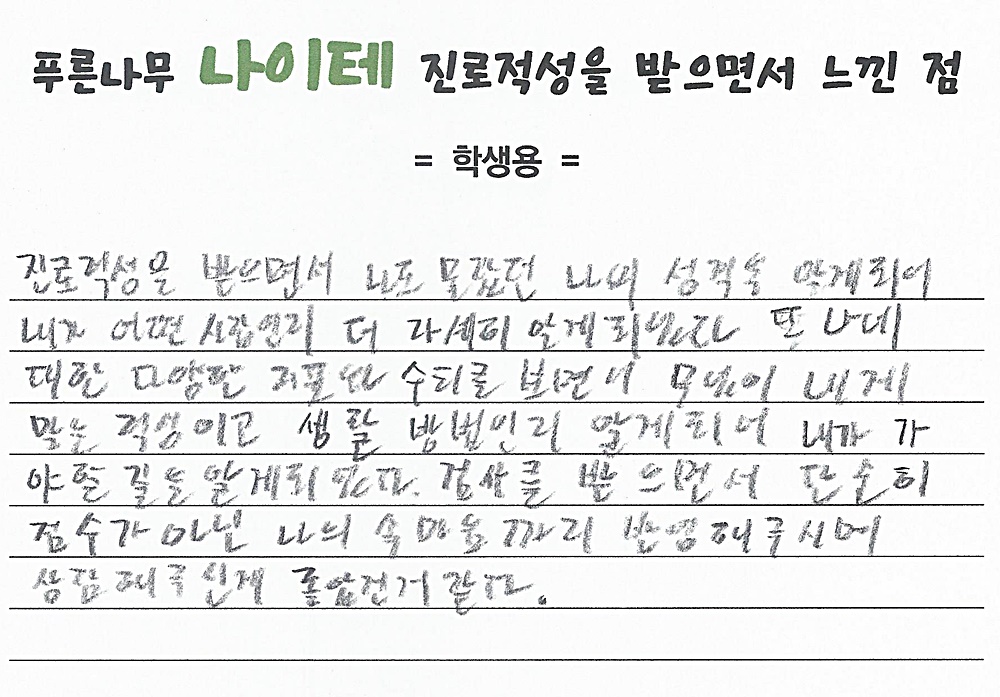 푸른나무 나이테 진로적성을 받으면서 느낀 점
= 학생용 =
진로적성을 받으면서 나도 몰랐던 나의 성격을 알게되어
내가 어떤 사람인지 더 자세히 알게되었다 또 나에
대한 다양한 지표와 수치를 보면서 무엇이 내게
맞는 적성이고 생활 방법인지 알게되어 내가 가
야할 길을 알게되었다. 검사를 받으면서 단순히
점수가 아닌 나의 속마음까지 반영해주시며
상담해주신게 좋았건거 같다.